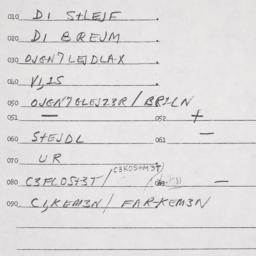 010 DI StLEJF .
020 DI BREJM .
030 OJGN7LEJDLAX .
040 VI,2S .
050 OJGN7GLEJZ3R / BRILN
051 — 052 +
060 StEJDL 061 —
070 UR
C3KOS+M3T
080 C3FLOS+3T/ —
090 CI,KEM3N / FARKEM3N